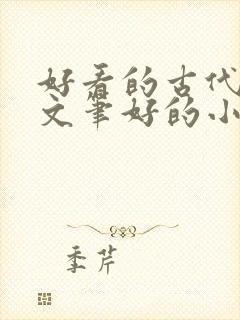 好看的古代
文笔好的小
季芹